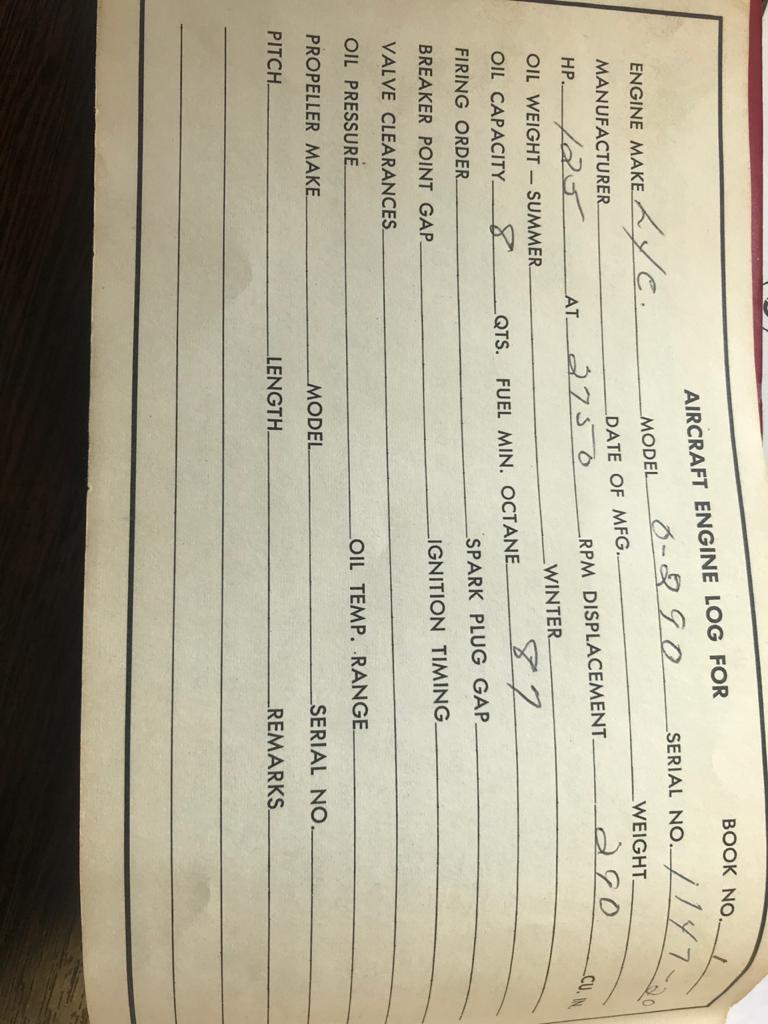 BOOK NO. 1
AIRCRAFT ENGINE LOG FOR
ENGINE MAKE Lyc. MODEL O-290 SERIAL NO. 1147-20
MANUFACTURER DATE OF MFG. WEIGHT
HP. 125 AT 2750 RPM DISPLACEMENT 290 CU. IN.
OIL WEIGHT – SUMMER WINTER
OIL CAPACITY 8 QTS. FUEL MIN. OCTANE 87
FIRING ORDER SPARK PLUG GAP
BREAKER POINT GAP IGNITION TIMING
VALVE CLEARANCES
OIL PRESSURE OIL TEMP. RANGE
PROPELLER MAKE MODEL SERIAL NO.
PITCH LENGTH REMARKS